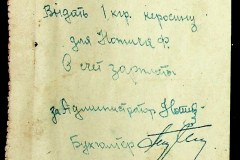 Выдать 1 кгр. керосину
для Котича Ф.
в счет зарплаты
за Администратор
Бухгалтер